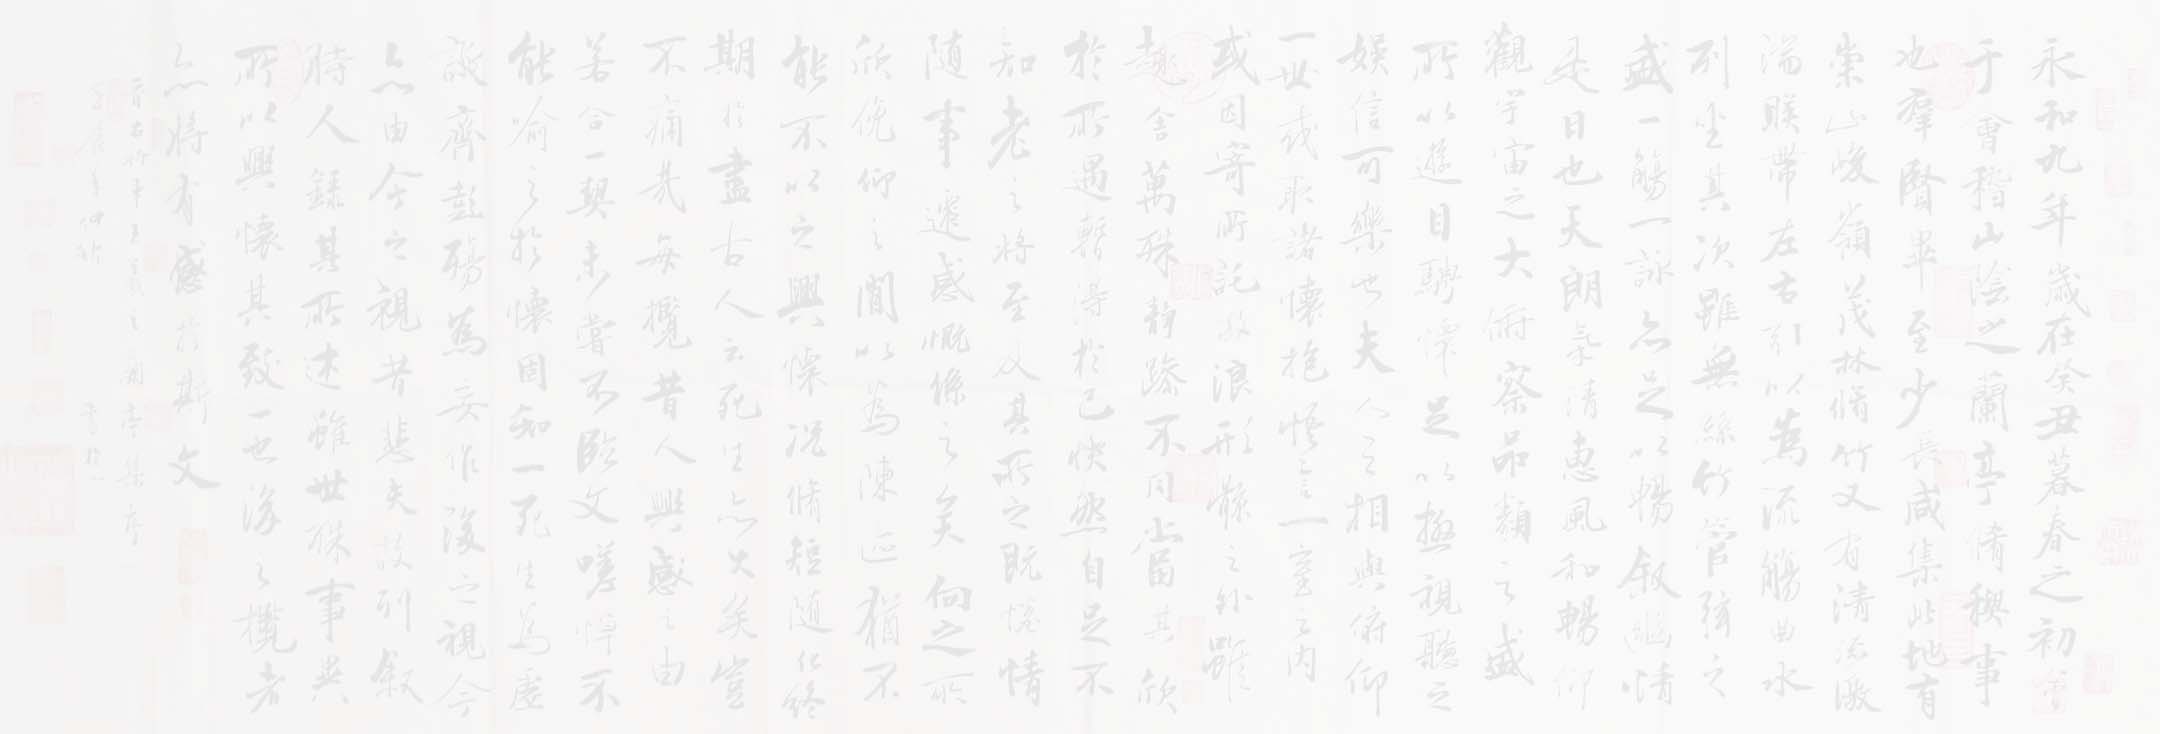 永和九年歲在癸丑暮春之初會
于會稽山陰之蘭亭脩稧事
也羣賢畢至少長咸集此地有
崇山峻嶺茂林脩竹又有清流激
湍暎帶左右引以為流觴曲水
列坐其次雖無絲竹管弦之
盛一觴一詠亦足以暢敘幽情
是日也天朗氣清惠風和暢仰
觀宇宙之大俯察品類之盛
所以遊目騁懷足以極視聽之
娛信可樂也夫人之相與俯仰
一世或取諸懷抱悟言一室之內
或因寄所託放浪形骸之外雖
趣舍萬殊靜躁不同當其欣
於所遇暫得於己快然自足不
知老之將至及其所之既惓情
隨事遷感慨係之矣向之所
欣俛仰之閒以為陳迹猶不
能不以之興懷況脩短隨化終
期於盡古人云死生亦大矣豈
不痛哉每攬昔人興感之由
若合一契未嘗不臨文嗟悼不
能喻之於懷固知一死生為虛
誕齊彭殤為妄作後之視今
亦由今之視昔悲夫故列敘
時人錄其所述雖世殊事異
所以興懷其致一也後之攬者
亦將有感於斯文
晉右將軍王羲之蘭亭集序